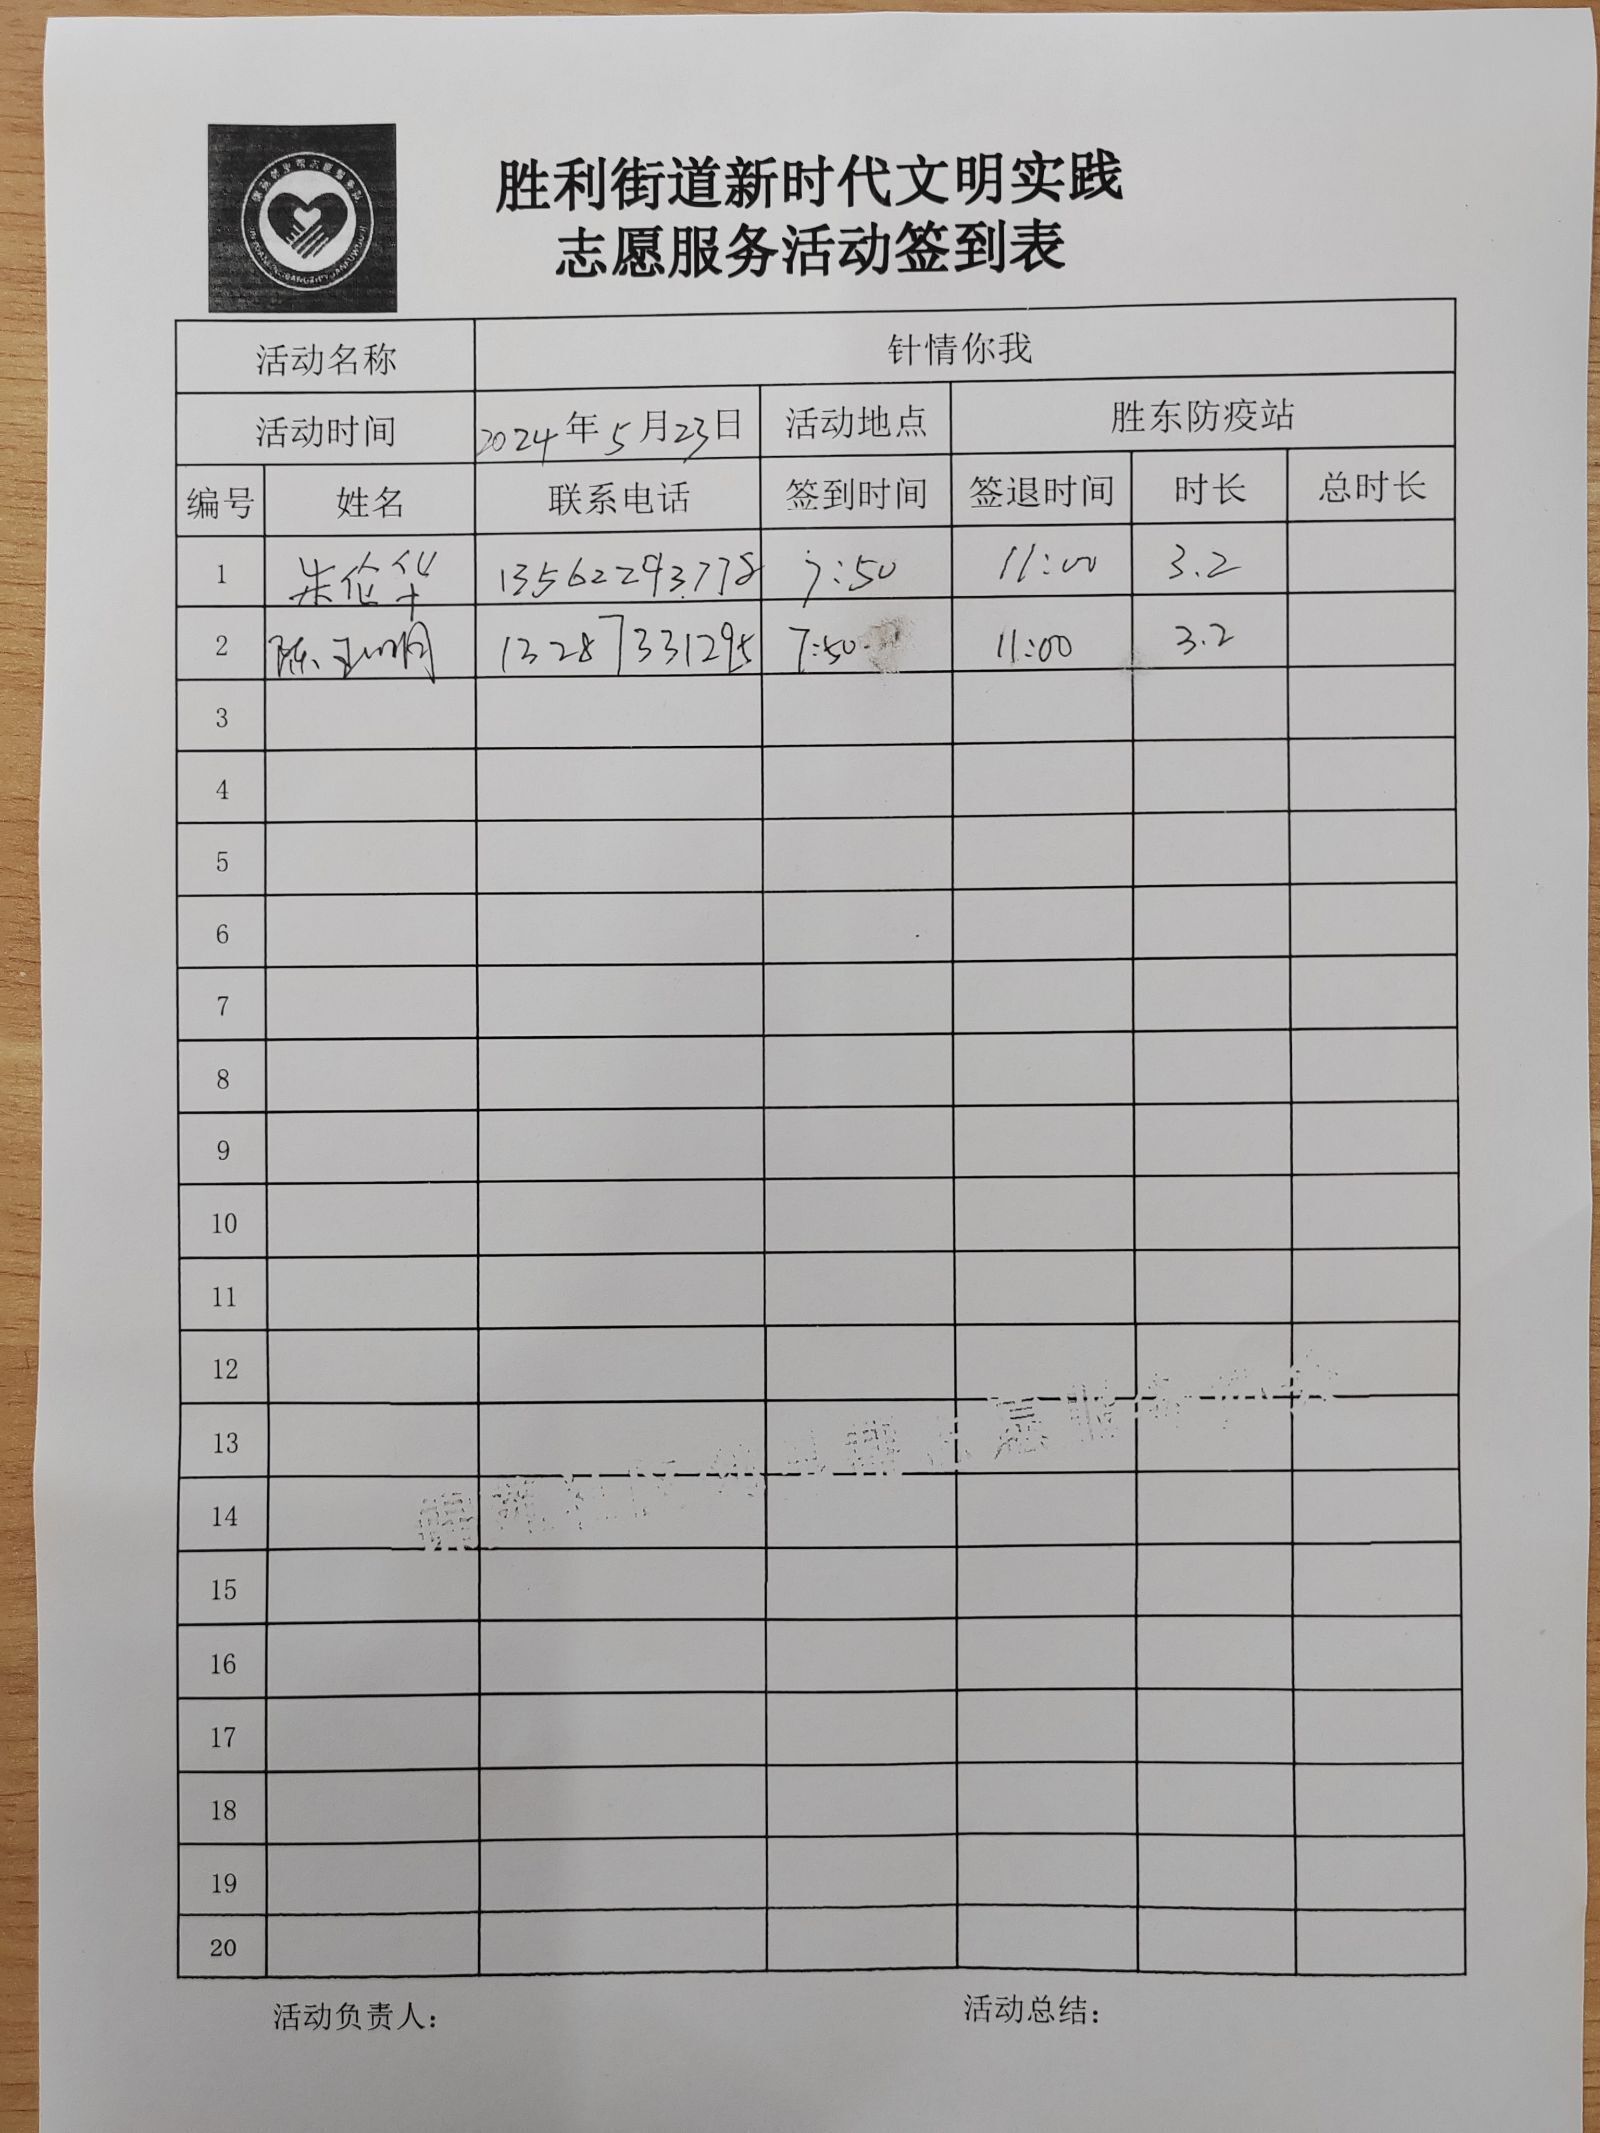 胜利街道新时代文明实践
志愿服务活动签到表
活动名称 针情你我
活动时间 2024年5月23日 活动地点 胜东防疫站
编号 姓名 联系电话 签到时间 签退时间 时长 总时长
1 朱伦华 13562293778 7:50 11:00 3.2
2 陈玉明 13287331295 7:50 11:00 3.2
3
4
5
6
7
8
9
10
11
12
13
14
15
16
17
18
19
20
活动负责人： 活动总结：